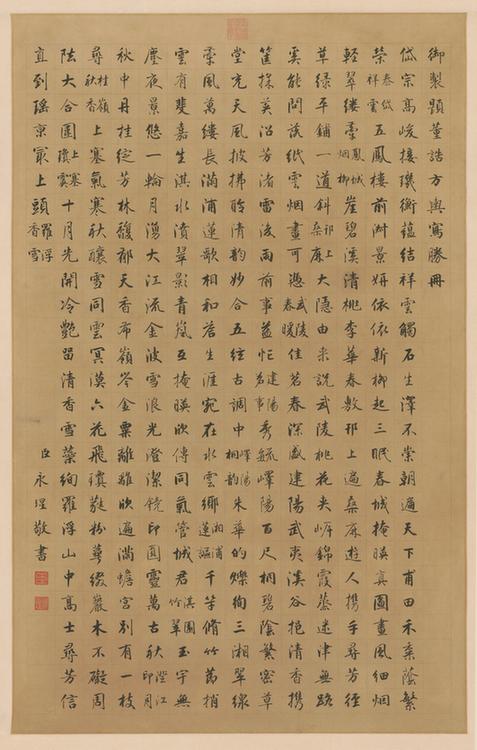 御製題董誥方輿寫勝冊
岱宗高峻接璣衡蘊結祥雲觸石生澤不崇朝遍天下甫田禾黍蔭繁
榮泰岱祥雲五鳳樓前淑景妍依依新柳起三眠春城掩暎真圖畫風細烟
輕翠縷柔鳳城烟柳崖碧溪清桃李華春敷邗上遍桑麻遊人攜手尋芳徑
草綠平鋪一道斜邗上桑麻大隱由來說武陵桃花夾岸錦霞蒸迷津無路
奚能問設紙雲烟畫可憑武陵春暖佳茗春深盛建陽武夷溪谷挹清香攜
筐採英沿芳渚雷後雨前事益忙建陽茗事秀毓嶧陽百尺桐碧陰繁密草
堂充天風披拂聆清韵妙合五絃古調中嶧陽桐韵朱華的爍絢三湘翠線
柔風萬縷長滿浦蓮歌相和荅生涯宛在水雲鄉湘浦蓮謳千竿脩竹萬梢
雲有斐嘉生淇水濆翠影青嵐互掩暎欣傳同氣管城君淇園竹翠玉宇無
塵夜景悠一輪月湧大江流金波雪浪光澄潔鏡印圓靈萬古秋澄江印月
秋中丹桂綻芳林馥郁天香布嶺岑金粟離離欣遍滿蟾宮別有一枝
尋桂嶺秋香上塞氣寒秋釀雪同雲冥漠六花飛瓊甃粉蕚綴巖木不礙周
阹大合圍上塞瓊雲十月先開冷艷留清香雪蘂絢羅浮山中高士尋芳信
直到瑤京最上頭羅浮香雪
臣永瑆敬書